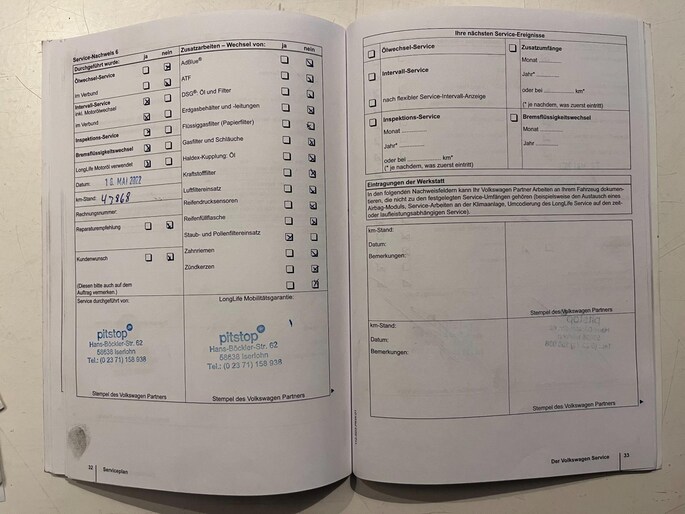 Service-Nachweis 6
Durchgeführt wurde: ja nein
Ölwechsel-Service
im Verbund
Intervall-Service
inkl. Motorölwechsel
im Verbund
Inspektions-Service
Bremsflüssigkeitswechsel
LongLife Motoröl verwendet
Datum: 18. MAI 2022
km-Stand: 47868
Rechnungsnummer:
Reparaturempfehlung
Kundenwunsch
(Diesen bitte auch auf dem
Auftrag vermerken.)
Zusatzarbeiten – Wechsel von: ja nein
AdBlue®
ATF
DSG®: Öl und Filter
Erdgasbehälter und -leitungen
Flüssiggasfilter (Papierfilter)
Gasfilter und Schläuche
Haldex-Kupplung: Öl
Kraftstofffilter
Luftfiltereinsatz
Reifendrucksensoren
Reifenfüllflasche
Staub- und Pollenfiltereinsatz
Zahnriemen
Zündkerzen
Service durchgeführt von:
pitstop
Hans-Böckler-Str. 62
58638 Iserlohn
Tel.: (0 23 71) 158 938
Stempel des Volkswagen Partners
LongLife Mobilitätsgarantie:
pitstop
Hans-Böckler-Str. 62
58638 Iserlohn
Tel.: (0 23 71) 158 938
Stempel des Volkswagen Partners
32 Serviceplan
Ihre nächsten Service-Ereignisse
Ölwechsel-Service
Intervall-Service
nach flexibler Service-Intervall-Anzeige
Inspektions-Service
Monat
Jahr*
oder bei km*
(* je nachdem, was zuerst eintritt)
Zusatzumfänge
Monat
Jahr*
oder bei km*
(* je nachdem, was zuerst eintritt)
Bremsflüssigkeitswechsel
Monat
Jahr
Eintragungen der Werkstatt
In den folgenden Nachweisfeldern kann Ihr Volkswagen Partner Arbeiten an Ihrem Fahrzeug dokumen-
tieren, die nicht zu den festgelegten Service-Umfängen gehören (beispielsweise den Austausch eines
Airbag-Moduls, Service-Arbeiten an der Klimaanlage, Umcodierung des LongLife Service auf den zeit-
oder laufleistungsabhängigen Service).
km-Stand:
Datum:
Bemerkungen:
Stempel des Volkswagen Partners
km-Stand:
Datum:
Bemerkungen:
Stempel des Volkswagen Partners
Der Volkswagen Service 33